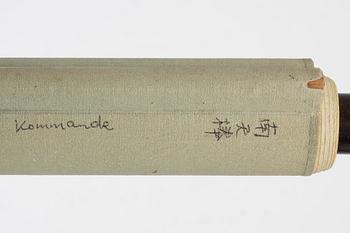 Kommande
南天棒